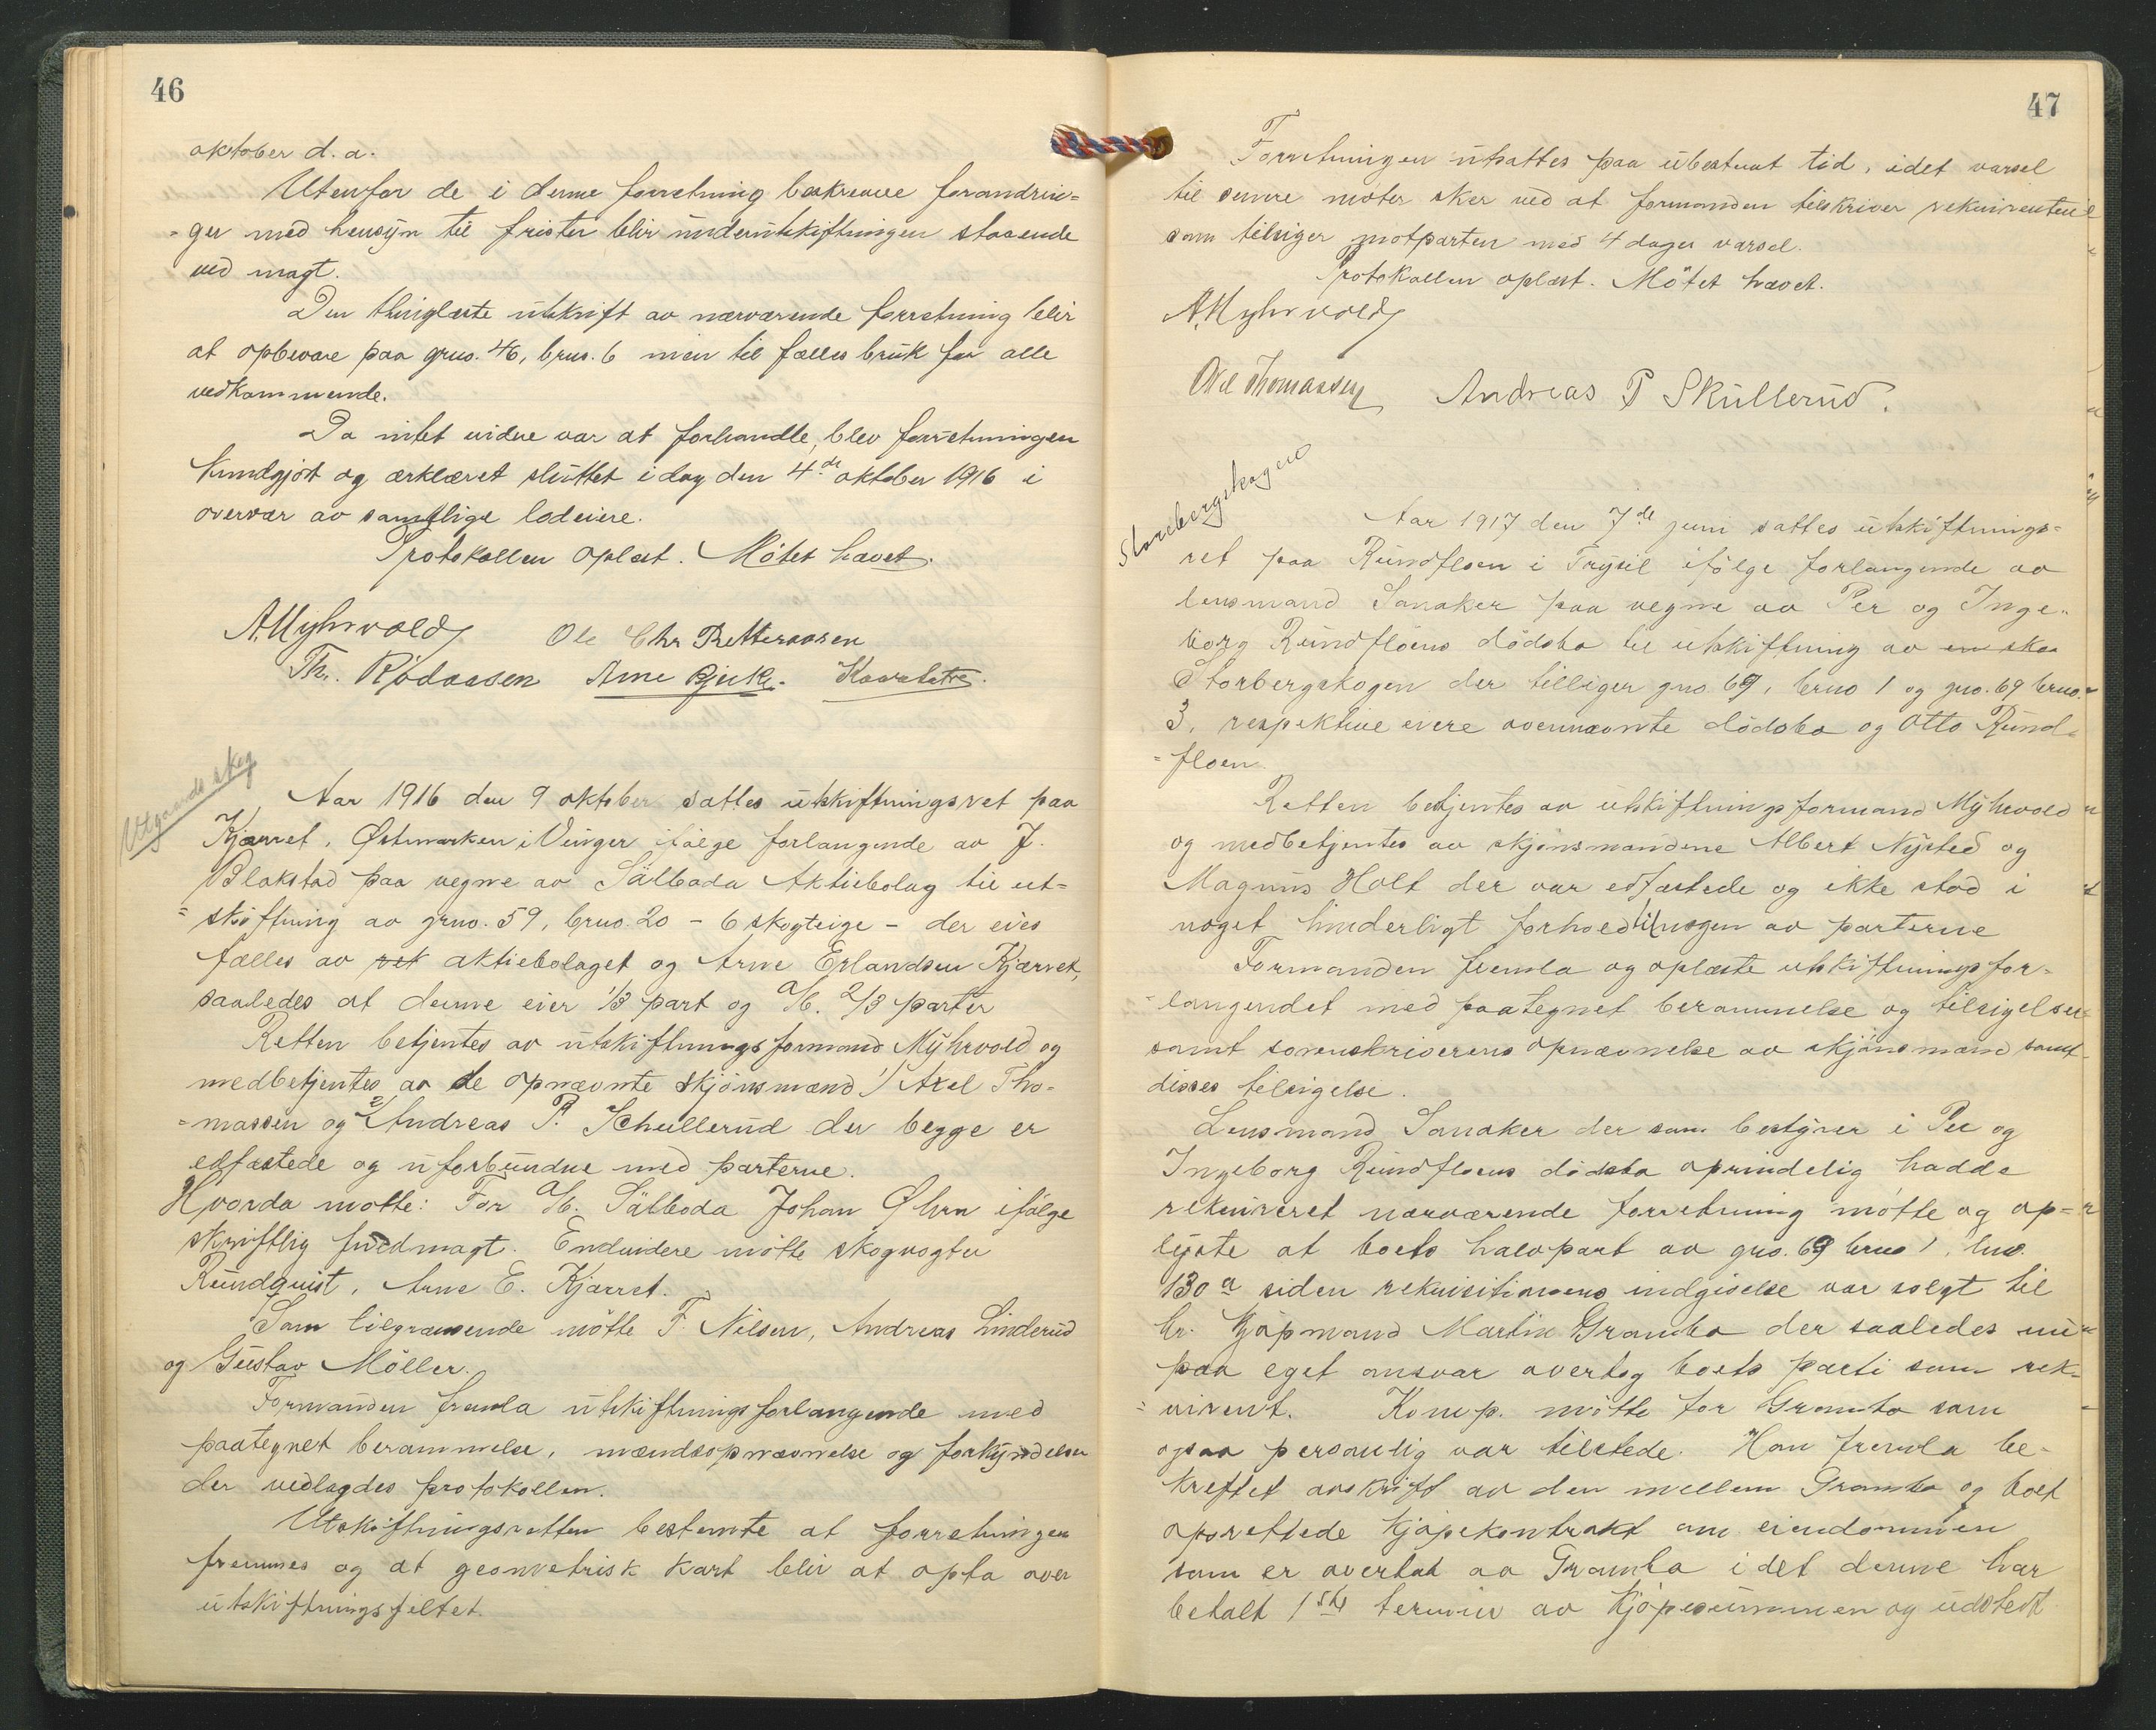 46
oktober d. a.
Utenfor de i denne forretning beskrevne forandrin-
-ger med hensyn til frister blir underutskiftningen staaende
ved magt.
Den thinglæste utskrift av nærværende forretning blir
at opbevare paa grno. 46, brno. 6 men til fælles bruk for alle
vedkommende.
Da intet videre var at forhandle, blev forretningen
kundgjort og erklæret sluttet idag den 4de oktober 1916 i
overvær av samtlige lodeiere.
Protokollen oplæst. Møtet hævet.
A. Myhrvold Ole Chr Bitteraasen
Th. Rødaasen Arne Bjerke.
Utgaards skog
Aar 1916 den 9 oktober sattes utskiftningsret paa
Kjærret, Østmarken i Vinger ifølge forlangende av J.
Blakstad paa vegne av Sälboda Aktiebolag til ut-
-skiftning av grno. 59, brno. 20 - 6 skogteige - der eies
fælles av ret aktiebolaget og Arne Erlandsen Kjærret,
saaledes at denne eier 1/3 part og A/B. 2/3 parter
Retten betjentes av utskiftningsformand Myhrvold og
medbetjentes av de opnævnte skjønsmænd 1/ Axel Tho-
-massen og 2/ Andreas P. Schullerud der begge er
edfæstede og uforbundne med parterne.
Hvorda møtte: For A/B. Sälboda Johan Øhrn ifølge
skriftlig fuldmagt. Endvidere møtte skogvogter
Rundquist, Arne E. Kjærret.
Som tilgrænsende møtte F. Nilsen, Andreas Linderud
og Gustav Möller.
Formanden fremla utskiftningsforlangende med
paategnet berammelse, mændsopnævnelse og forkyndelser
der vedlagdes protokollen.
Utskiftningsretten bestemte at forretningen
fremmes og at geometrisk kart blir at opta over
utskiftningsfeltet.
47
Forretningen utsattes paa ubestemt tid, idet varsel
til senere møter sker ved at formanden tilskriver rekvirenten
som tilsiger motparten med 4 dages varsel.
Protokollen oplæst. Møtet hævet.
A. Myhrvold
Axel Thomassen Andreas P Skullerud.
Storebergskogen
Aar 1917 den 7de juni sattes utskiftnings-
ret paa Rundfloen i Trysil ifølge forlangende av
lensmand Sanaker paa vegne av Per og Inge-
borg Rundfloens dødsbo til utskiftning av en sko
Storbergskogen der tilligger gno. 69, brno 1 og gno. 69 brno.
3, respektive eiere ovennævnte dødsbo og Otto Rund-
-floen.
Retten betjentes av utskiftningsformand Myhrvold
og medbetjentes av skjønsmændene Albert Nysted og
Magnus Holt der var edfæstede og ikke stod i
noget hinderligt forhold til nogen av parterne
Formanden fremla og oplæste utskiftningsfor-
-langendet med paategnet berammelse og tilsigelser
samt sorenskriverens opnævnelse av skjønsmænd samt
disses tilsigelse.
Lensmand Sanaker der som bestyrer i Per og
Ingeborg Rundfloens dødsbo oprindelig hadde
rekvireret nærværende forretning møtte og op-
lyste at boets halvpart av gno. 69 brno 1, lno.
130 a siden rekvisitionens indgivelse var solgt til
hr. kjøpmand Martin Grambo der saaledes nu
paa eget ansvar overtog boets parti som rek-
-virent. Komp. møtte for Grambo som
ogsaa personlig var tilstede. Han fremla be-
kreftet avskrift av den mellem Grambo og boet
oprettede kjøpekontrakt om eiendommen
som er overtat av Grambo idet denne har
betalt 1ste termin av kjøpesummen og udstedt